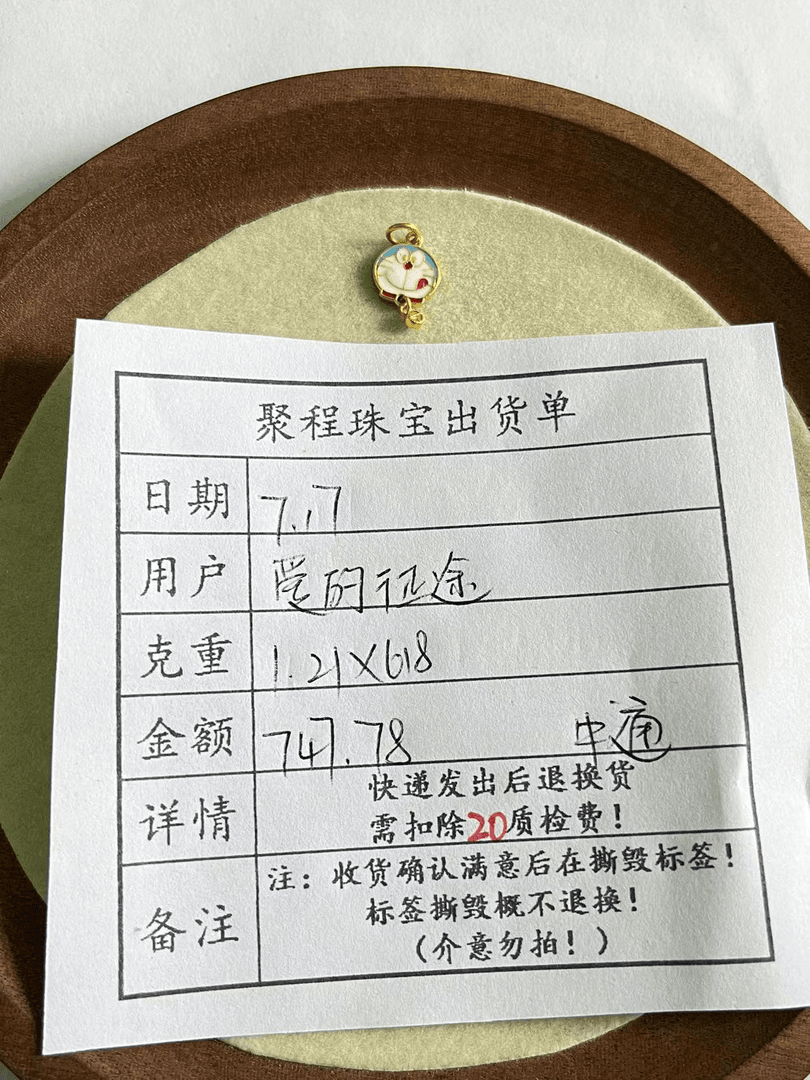 聚程珠宝出货单
日期 7.17
用户 的征途
克重 1.21×618
金额 747.78 中通
详情 快递发出后退换货
需扣除20质检费!
备注 注:收货确认满意后在撕毁标签!
标签撕毁概不退换!
(介意勿拍!)